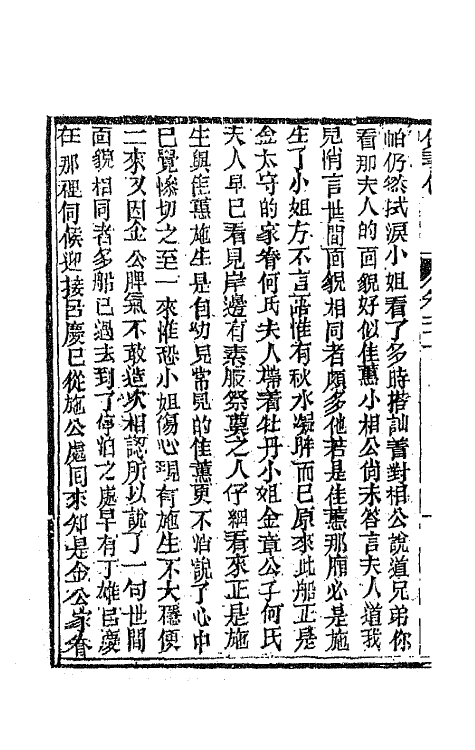 帕仍然拭淚小姐看了多時搭訕着對相公說道兄弟你
看那夫人的面貌好似佳蕙小相公尚未答言夫人道我
兒悄言世間面貌相同者頗多他若是佳蕙那廂必是施
生了小姐方不言語惟有秋水凝眸而已原來此船正是
金太守的家眷何氏夫人帶着牡丹小姐金章公子何氏
夫人早已看見岸邊有素服祭奠之人仔細看來正是施
生與佳蕙施生是自幼兒常見的佳蕙更不怕說了心中
已覺慘切之至一來惟恐小姐傷心現有施生不大穩便
二來又因金公脾氣不敢造次相認所以說了一句世間
面貌相同者多船已過去到了停泊之處早有丁雄呂慶
在那裡伺候迎接呂慶已從施公處回來知是金公家眷